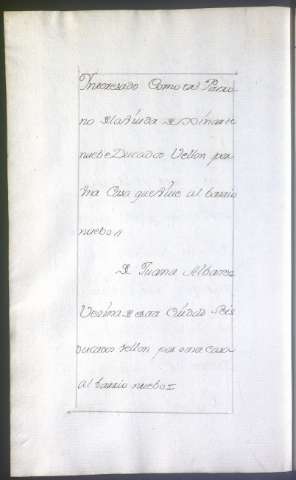 Ynteresado Como tal Patro
no de la Viuda de
nuebe Ducados Vellon por
Vna Casa que al barrio
nuebo
De Juana Albarez
Vecina de esta Ciudad Seis
ducados vellon por una casa
al barrio nuebo